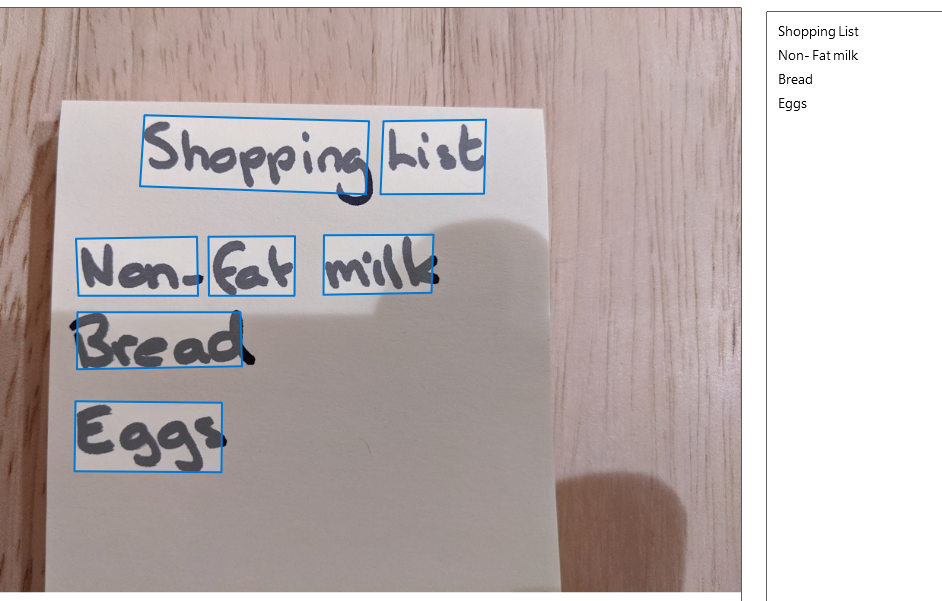 Shopping List
Non-Fat milk
Bread
Eggs
Shopping List
Non- Fat milk
Bread
Eggs